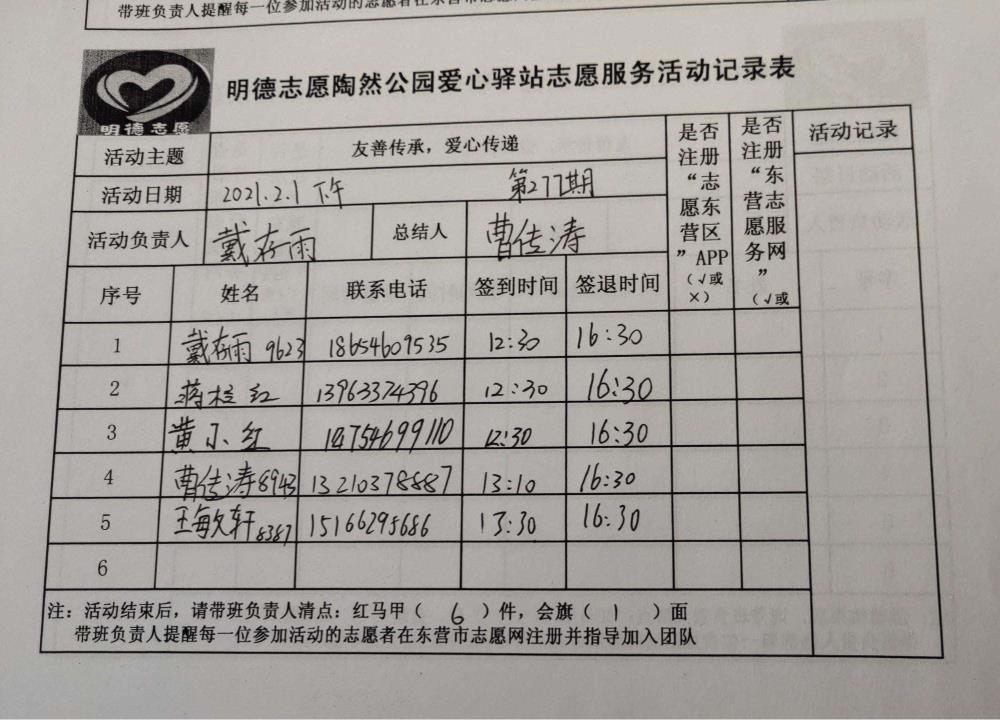 带班负责人提醒每一位参加活动的志愿者在东营市志愿网
明德志愿
明德志愿陶然公园爱心驿站志愿服务活动记录表
活动主题 友善传承，爱心传递
活动日期 2021.2.1 下午 第277期
活动负责人 戴存雨 总结人 曹传涛
是否注册“志愿东营区”APP（√或×）
是否注册“东营志愿服务网”（√或
活动记录
序号 姓名 联系电话 签到时间 签退时间
1 戴存雨 9623 18654609535 12:30 16:30
2 蒋桂红 13963374396 12:30 16:30
3 黄小红 14754699110 12:30 16:30
4 曹传涛 8943 13210378887 13:10 16:30
5 王敏轩 8387 15166295686 13:30 16:30
6
注：活动结束后，请带班负责人清点：红马甲（ 6 ）件，会旗（ 1 ）面
带班负责人提醒每一位参加活动的志愿者在东营市志愿网注册并指导加入团队